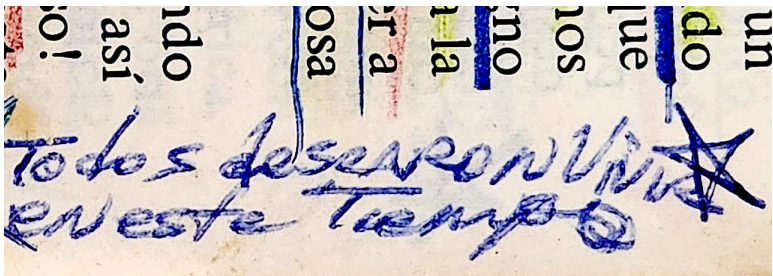 un
do
que
nos
gno
a la
er a
osa
ndo
así
so!
Todos desearon Vivir
en este Tiempo